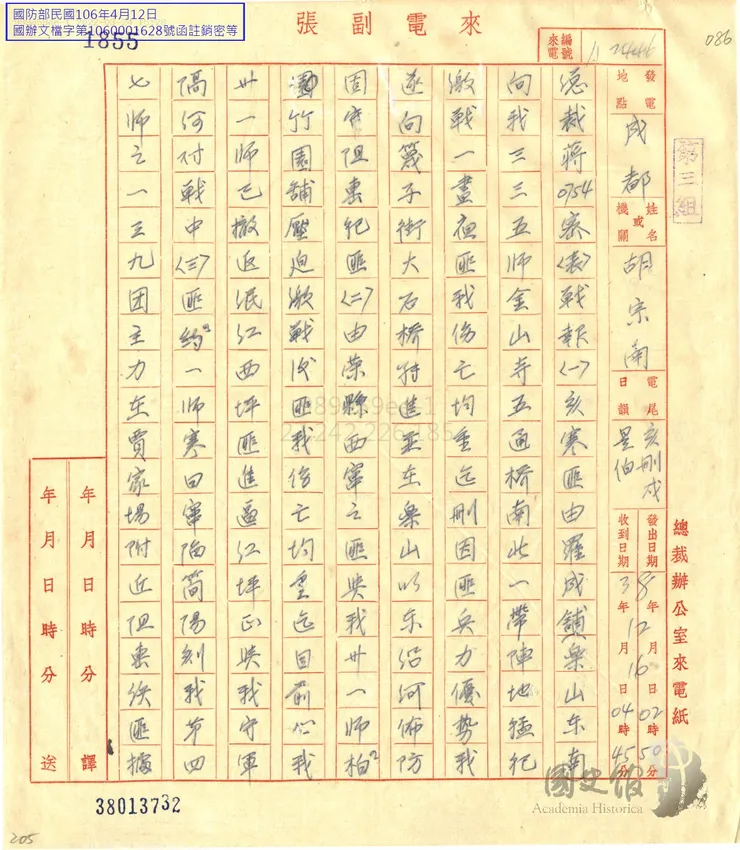 國防部民國106年4月12日
國辦文檔字第1060001628號函註銷密等
1855
來電副張
086
來電編號
第三組
發電地點
成都
姓名或機關
胡宗南
電尾日韻
亥刪戌
昱伯
發出日期
38年12月16日02時50分
收到日期
年月日04時45分
總裁辦公室來電紙
總裁蔣0754寒(表)戰報(一)亥寒匪由羅成舖樂山東南
向我三三五師金山寺五通橋南北一帶陣地猛犯
激戰一晝夜匪我傷亡均重迄刪因匪兵力優勢我
遂向篾子街大石橋轉進至樂山以東沿河佈防
固守阻東犯匪(二)由榮縣西竄之匪與我卅一師
竹園舖壓迫激戰後匪我傷亡均重迄目前止我
卅一師已撤返泯江西坪匪進逼江坪正與我守軍
隔河對戰中(三)匪約一師寒日竄陷簡陽刻我第四
七師之一三九团主力在賈家場附近阻東後匪據
年月日時分譯
年月日時分送
38013732
國史館
Academia Historica
205